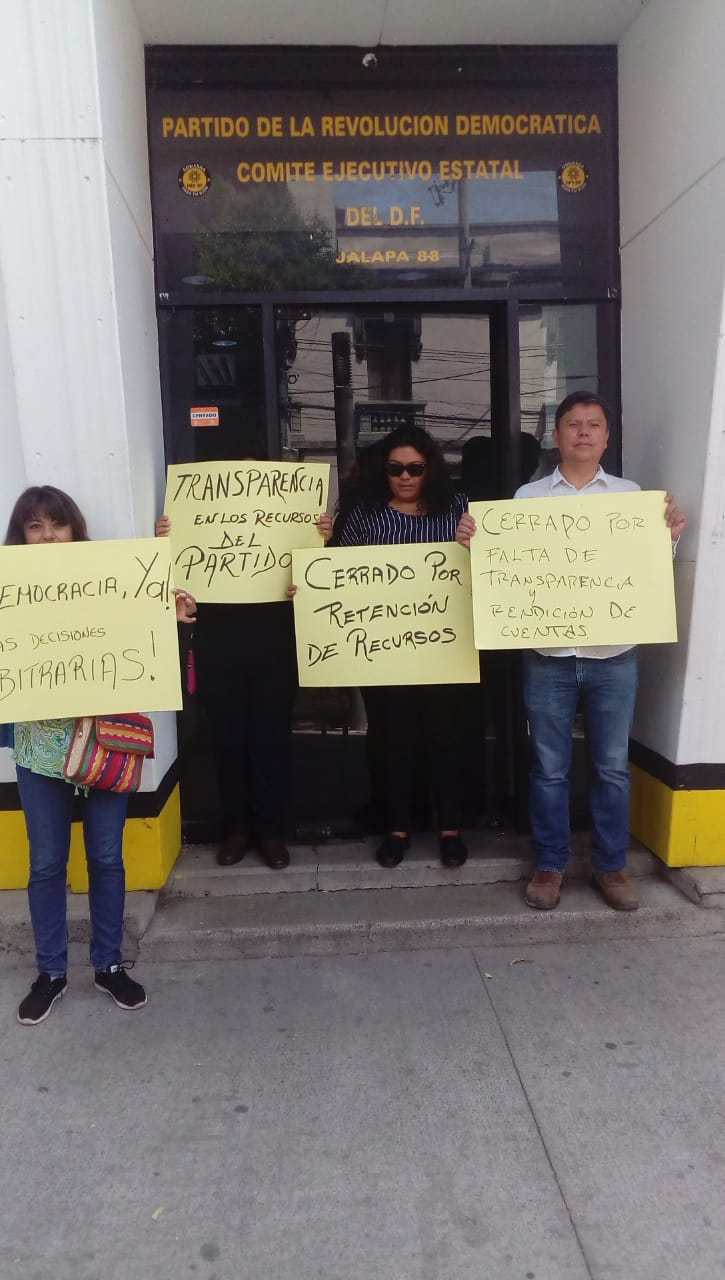 PARTIDO DE LA REVOLUCION DEMOCRATICA
COMITE EJECUTIVO ESTATAL
DEL D.F.
JALAPA 88
TRANSPARENCIA
EN LOS RECURSOS
DEL
PARTIDO
EMOCRACIA, YA!
AS DECISIONES
BITRARIAS!
CERRADO POR
RETENCIÓN
DE RECURSOS
CERRADO POR
FALTA DE
TRANSPARENCIA
Y
RENDICIÓN DE
CUENTAS